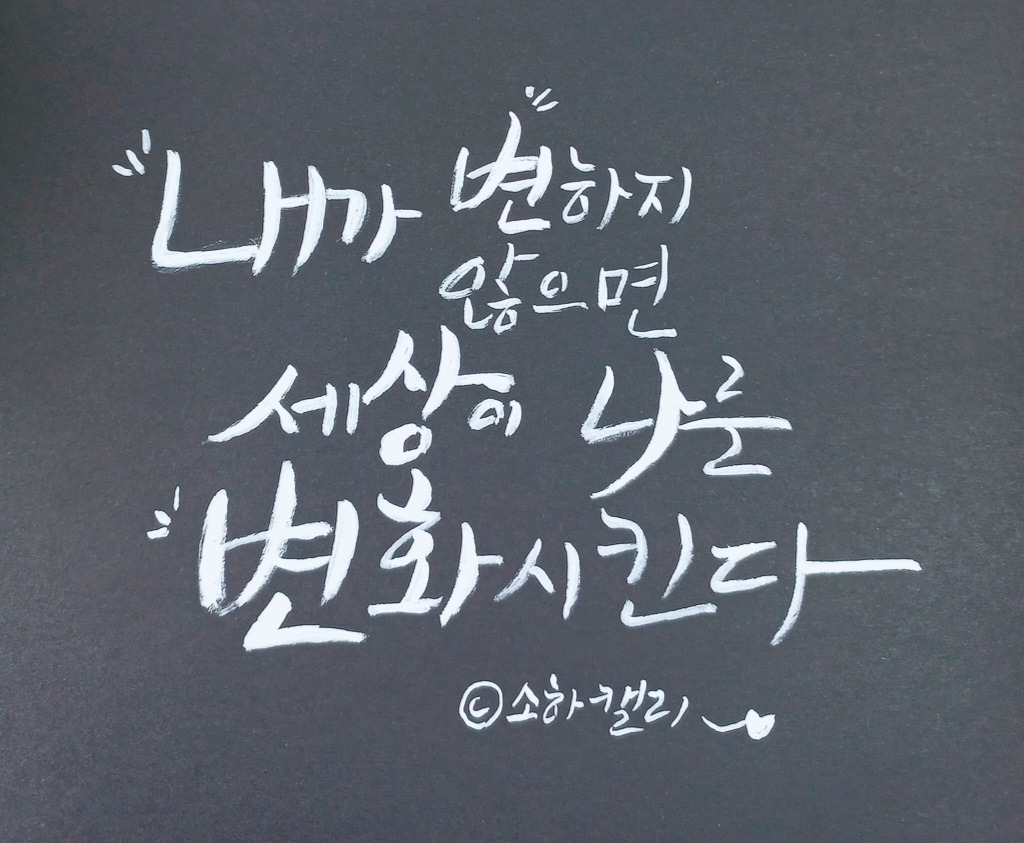 내가 변하지
않으면
세상이 나를
변화시킨다
©소하캘리